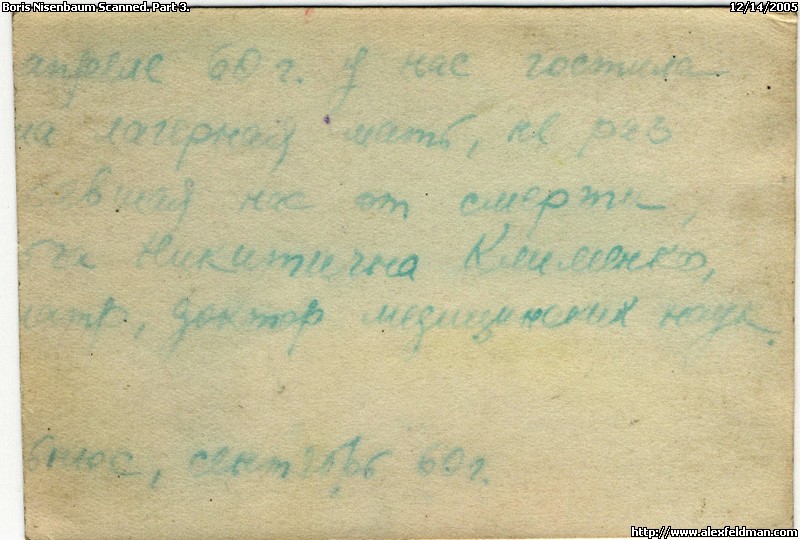 Boris Nisenbaum Scanned. Part 3.
12/14/2005
апреле 60 г. у нас гостила
на лагерная мать, не раз
савшая нас от смерти,
Никитична Клименко,
доктор медицинских наук.
ьнюс, сентябрь 60 г.
http://www.alexfeldman.com